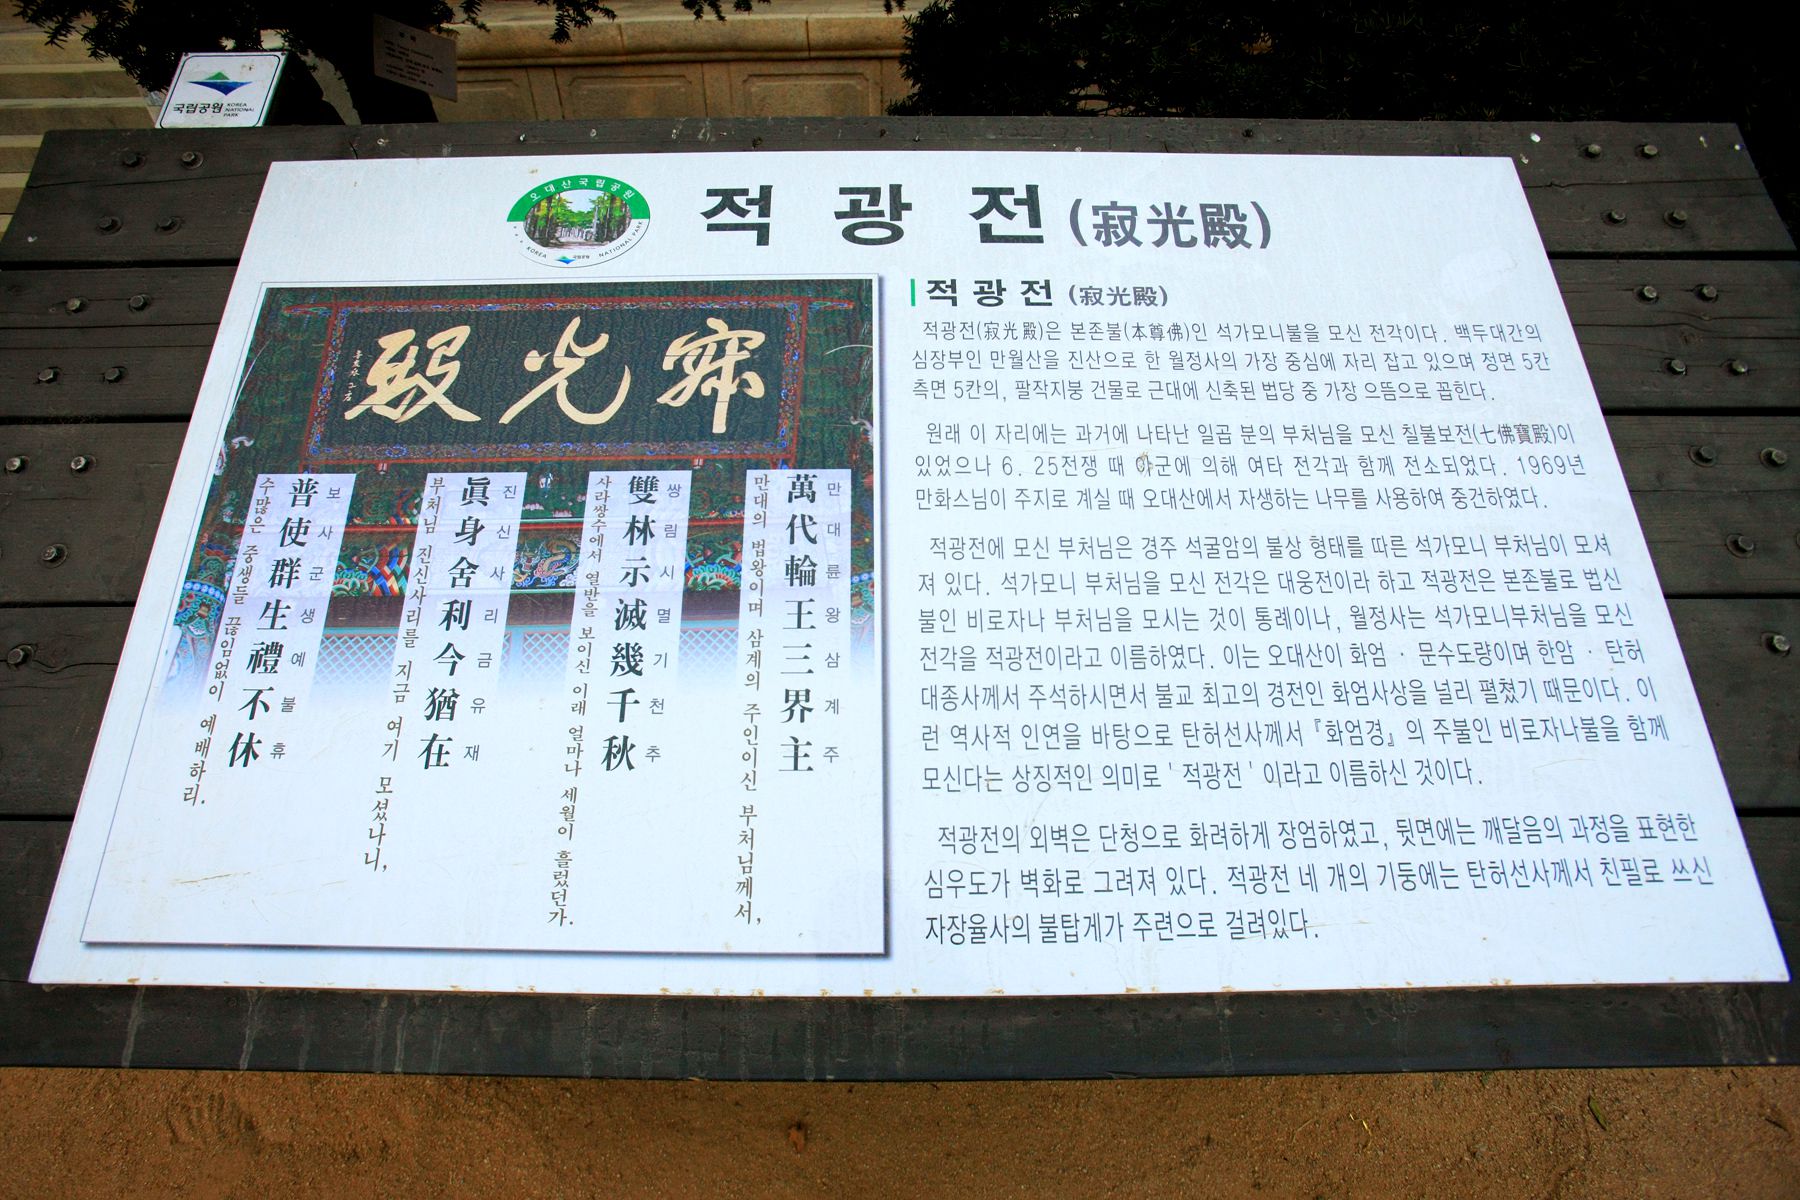 국립공원 KOREA NATIONAL PARK
오대산국립공원
KOREA NATIONAL PARK
국립공원
적 광 전 (寂光殿)
寂光殿
만대륜왕삼계주
萬代輪王三界主
만대의 법왕이며 삼계의 주인이신 부처님께서,
쌍림시멸기천추
雙林示滅幾千秋
사라쌍수에서 열반을 보이신 이래 얼마나 세월이 흘렀던가.
진신사리금유재
眞身舍利今猶在
부처님 진신사리를 지금 여기 모셨나니,
보사군생예불휴
普使群生禮不休
수많은 중생들 끊임없이 예배하리.
적광전 (寂光殿)
적광전(寂光殿)은 본존불(本尊佛)인 석가모니불을 모신 전각이다. 백두대간의
심장부인 만월산을 진산으로 한 월정사의 가장 중심에 자리 잡고 있으며 정면 5칸
측면 5칸의, 팔작지붕 건물로 근대에 신축된 법당 중 가장 으뜸으로 꼽힌다.
원래 이 자리에는 과거에 나타난 일곱 분의 부처님을 모신 칠불보전(七佛寶殿)이
있었으나 6. 25전쟁 때 아군에 의해 여타 전각과 함께 전소되었다. 1969년
만화스님이 주지로 계실 때 오대산에서 자생하는 나무를 사용하여 중건하였다.
적광전에 모신 부처님은 경주 석굴암의 불상 형태를 따른 석가모니 부처님이 모셔
져 있다. 석가모니 부처님을 모신 전각은 대웅전이라 하고 적광전은 본존불로 법신
불인 비로자나 부처님을 모시는 것이 통례이나, 월정사는 석가모니부처님을 모신
전각을 적광전이라고 이름하였다. 이는 오대산이 화엄 · 문수도량이며 한암 · 탄허
대종사께서 주석하시면서 불교 최고의 경전인 화엄사상을 널리 펼쳤기 때문이다. 이
런 역사적 인연을 바탕으로 탄허선사께서 『화엄경』의 주불인 비로자나불을 함께
모신다는 상징적인 의미로 '적광전' 이라고 이름하신 것이다.
적광전의 외벽은 단청으로 화려하게 장엄하였고, 뒷면에는 깨달음의 과정을 표현한
심우도가 벽화로 그려져 있다. 적광전 네 개의 기둥에는 탄허선사께서 친필로 쓰신
자장율사의 불탑게가 주련으로 걸려있다.